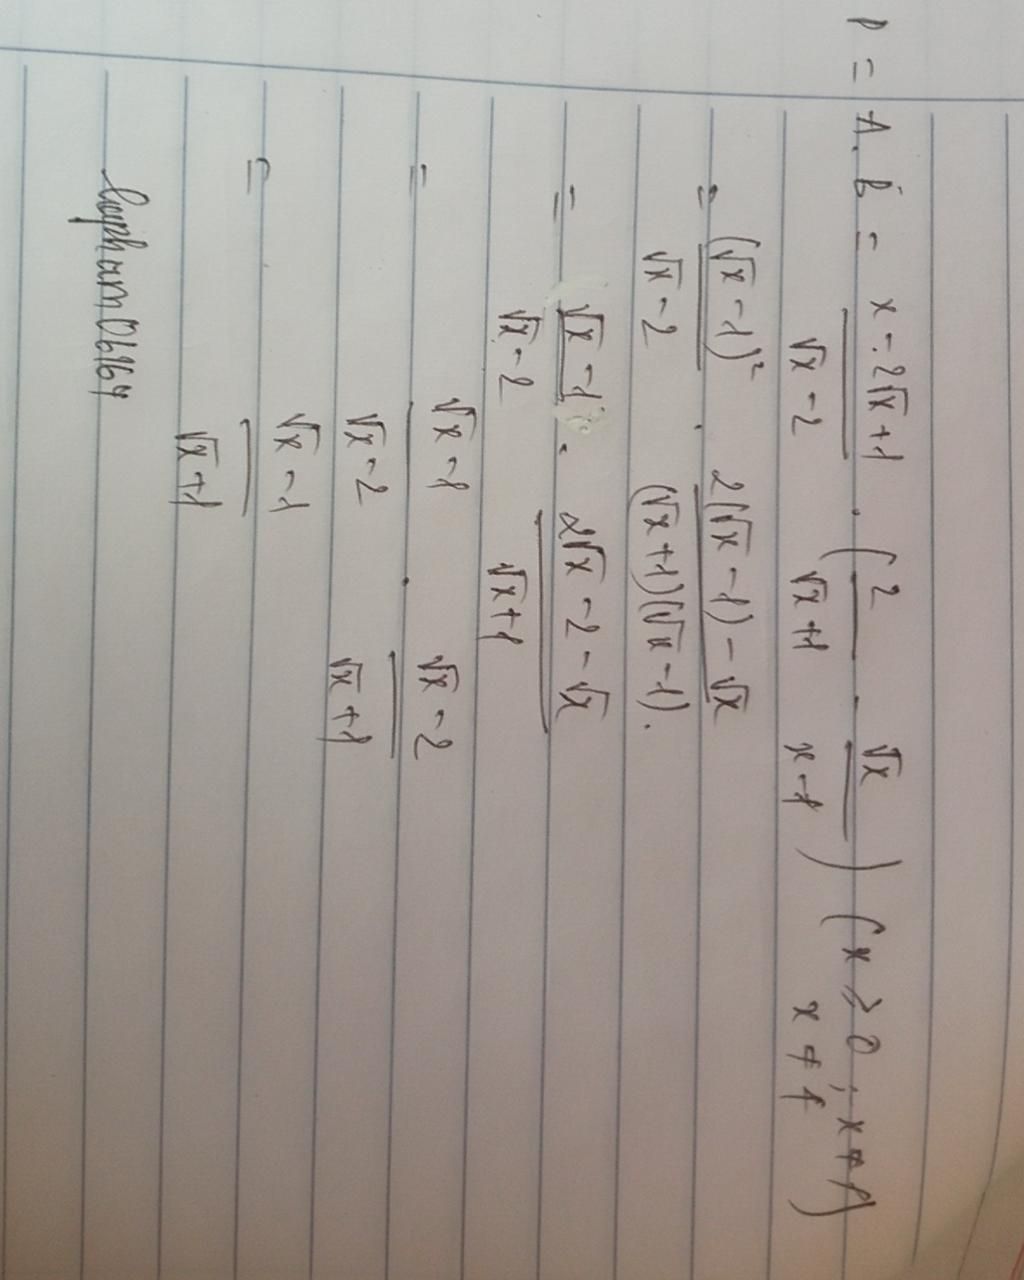 P = A.B = (x - 2√x + 1)/(√x - 2) . (2/(√x + 1) - √x/(x - 1)) (x ≥ 0 ; x ≠ 1
x ≠ 4)
= (√x - 1)²/(√x - 2) . (2(√x - 1) - √x)/((√x + 1)(√x - 1)).
= (√x - 1)/(√x - 2) . (2√x - 2 - √x)/(√x + 1)
= (√x - 1)/(√x - 2) . (√x - 2)/(√x + 1)
= (√x - 1)/(√x + 1)